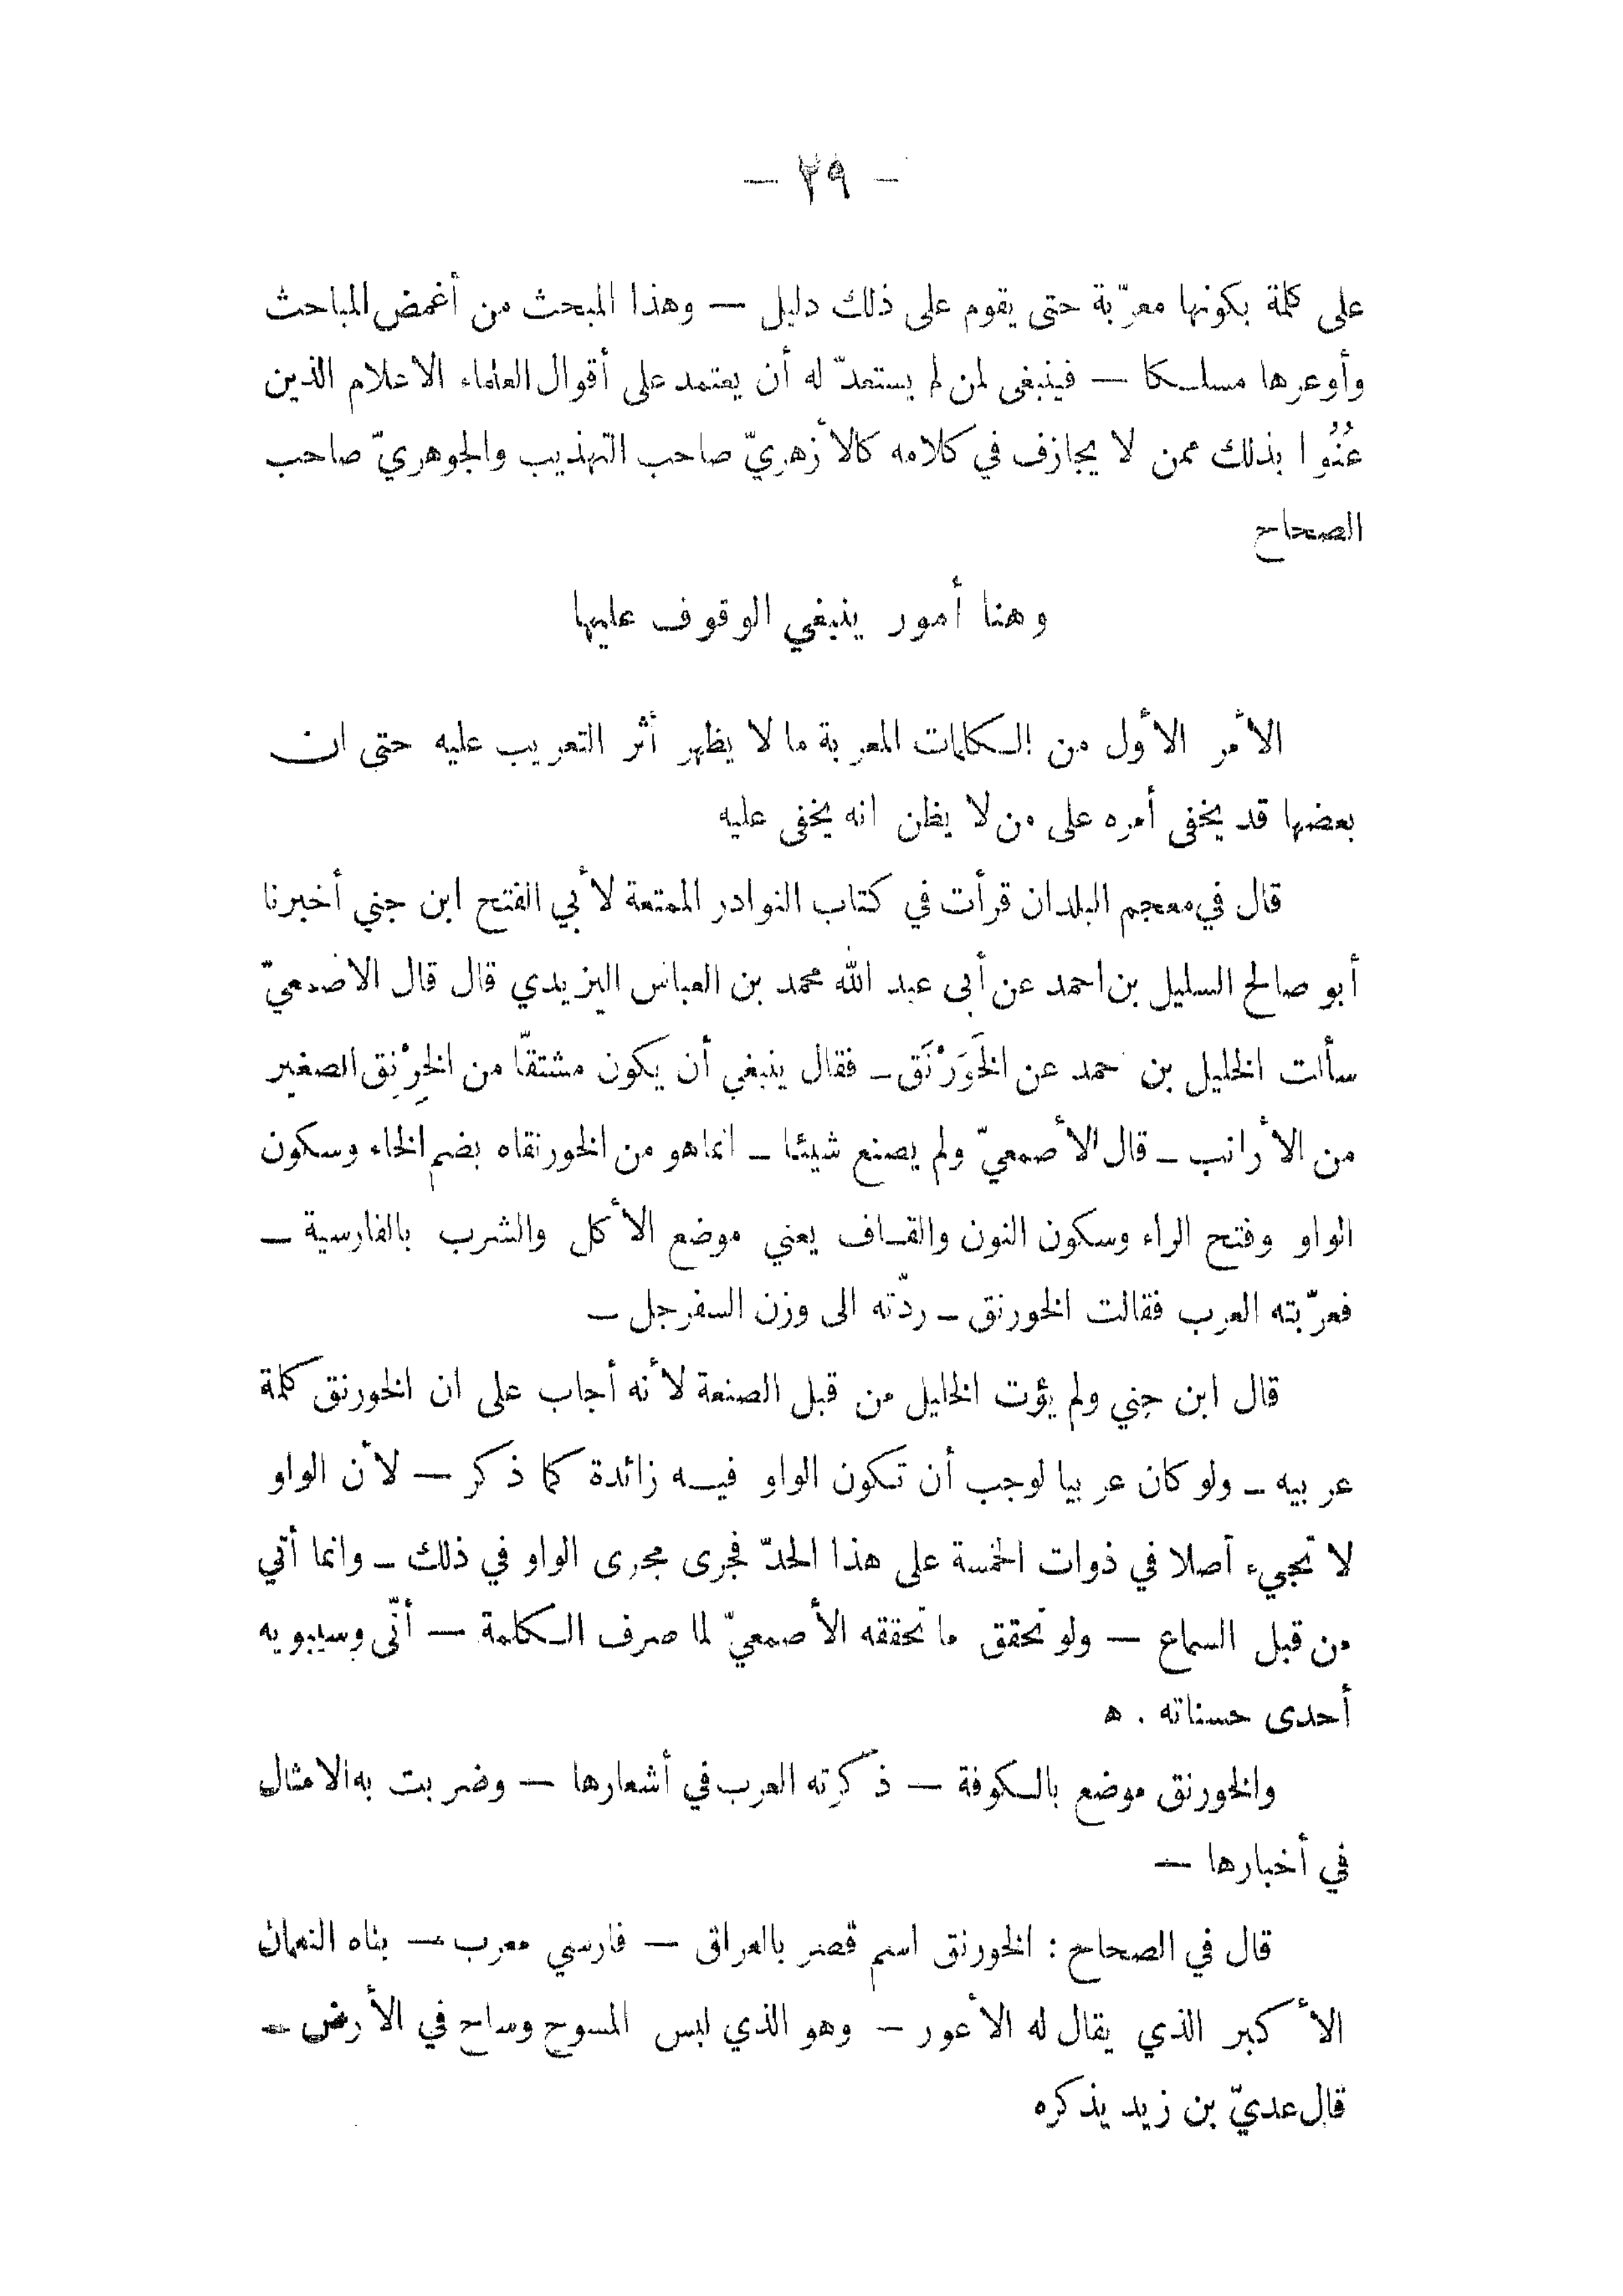 — ٢٩ —
على كلمة بكونها معرّبة حتى يقوم على ذلك دليل — وهذا المبحث من أغمض المباحث
وأوعرها مسلكا — فينبغى لمن لم يستعدّ له أن يعتمد على أقوال العلماء الاعلام الذين
عُنُوا بذلك ممن لا يجازف في كلامه كالأزهريّ صاحب التهذيب والجوهريّ صاحب
الصحاح
وهنا أمور ينبغي الوقوف عليها
الأمر الأول من الكلمات المعربة ما لا يظهر أثر التعريب عليه حتى ان
بعضها قد يخفى أمره على من لا يظن انه يخفى عليه
قال في معجم البلدان قرأت في كتاب النوادر الممتعة لأبي الفتح ابن جني أخبرنا
أبو صالح السليل بن احمد عن أبى عبد الله محمد بن العباس اليزيدي قال قال الاصمعيّ
سألت الخليل بن حمد عن الخَوَرْنَق — فقال ينبغي أن يكون مشتقّا من الخِرْنِق الصغير
من الأرانب — قال الأصمعيّ ولم يصنع شيئا — انما هو من الخورنقاه بضم الخاء وسكون
الواو وفتح الراء وسكون النون والقاف يعني موضع الأكل والشرب بالفارسية —
فعرّبته العرب فقالت الخورنق — ردّته الى وزن السفرجل —
قال ابن جني ولم يؤت الخليل من قبل الصنعة لأنه أجاب على ان الخورنق كلمة
عربيه — ولو كان عربيا لوجب أن تكون الواو فيه زائدة كما ذكر — لأن الواو
لا تجيء أصلا في ذوات الخمسة على هذا الحدّ فجرى مجرى الواو في ذلك — وانما أتي
من قبل السماع — ولو تحقق ما تحققه الأصمعيّ لما صرف الكلمة — أنّى وسيبويه
أحدى حسناته . ه
والخورنق موضع بالكوفة — ذكرته العرب في أشعارها — وضربت به الامثال
في أخبارها —
قال في الصحاح : الخورنق اسم قصر بالعراق — فارسي معرب — بناه النعمان
الأكبر الذي يقال له الأعور — وهو الذي لبس المسوح وساح في الأرض —
قال عديّ بن زيد يذكره